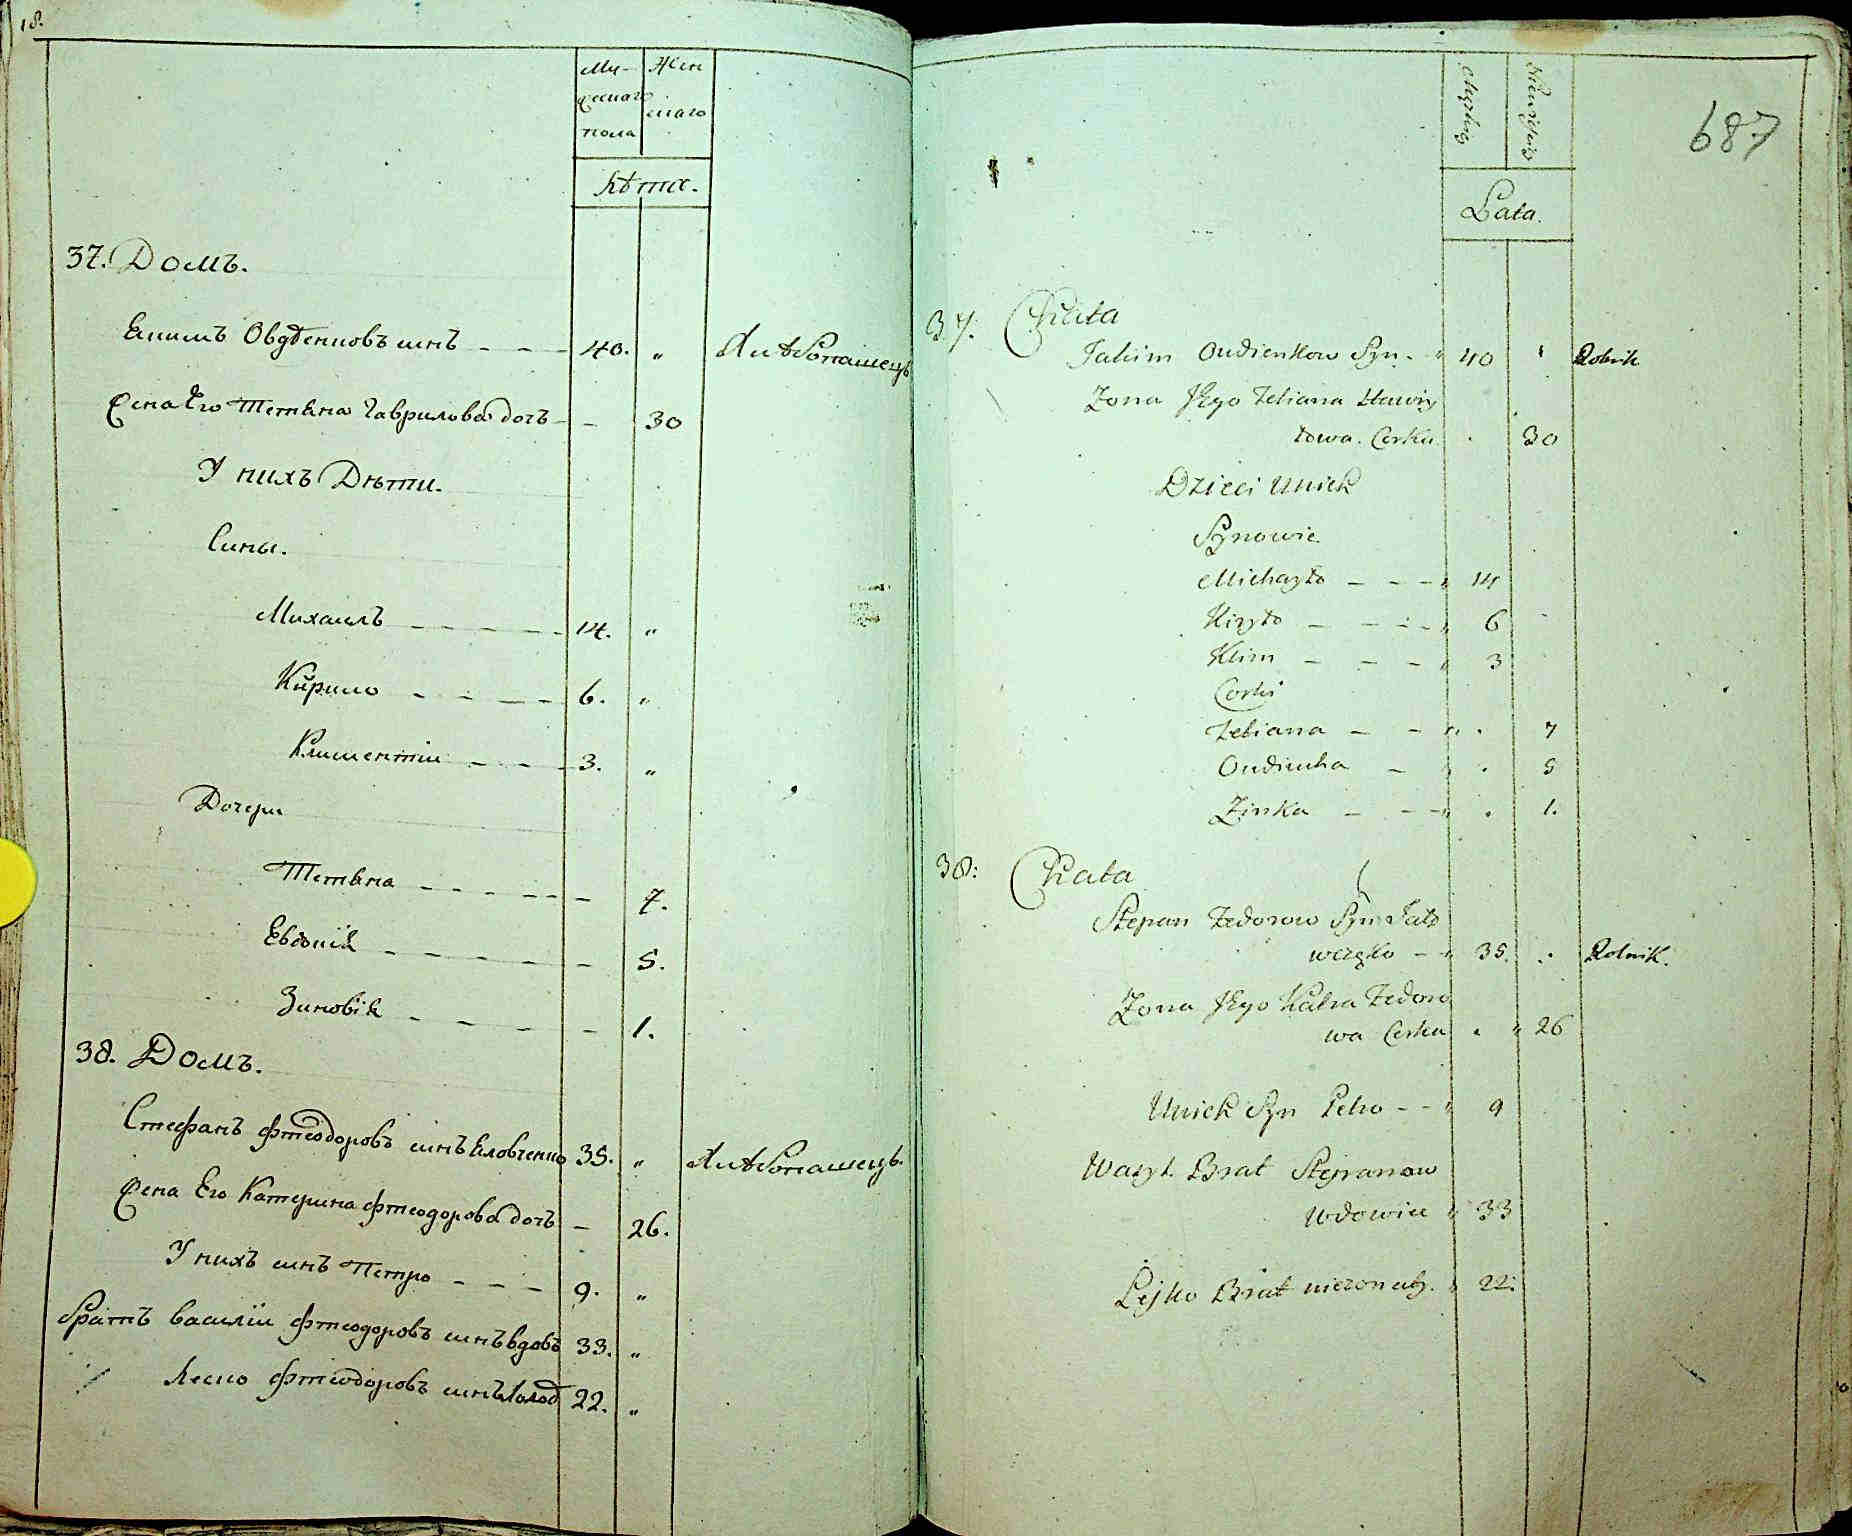 18.
Му-
жескаго
пола
Жен
скаго
Лѣта.
37. Домъ.
Якимъ Овдѣенковъ синъ - - - 40. „ Хлѣбопашецъ
Жена Его Тетяна Гаврилова дочъ - - 30
У нихъ Дѣти.
Сины.
Михаилъ - - - - - 14. „
Кирило - - - - - 6. „
Климентїи - - - - 3. „
Дочери
Тетяна - - - - - - 7.
Евдокїя - - - - - - 5.
Зиновїя - - - - - 1.
38. Домъ.
Стефанъ Фтеодоровъ синъ Яловченко 35. „ Хлѣбопашецъ.
Жена Его Катерина Фтеодорова дочъ - 26.
У нихъ синъ Петро - - - 9. „
Братъ Василїи Фтеодоровъ синъ вдовъ 33. „
Леско Фтеодоровъ синъ холод 22. „
687
Męzkiey
Żeńskiey
Lata.
37. Chata
Jakim Oudienkow Syn - 40 Rolnik
Zona Jego Tetiana Hawry
łowa Corka 30
Dzieci Unich
Synowie
Michayło - - - 14
Kiryło - - - - 6
Klim - - - 3
Corki
Tetiana - - 7
Oudiucha - 5
Zinka - - - 1.
38: Chata
Stepan Fedorow Syn Jało
wczęko - 35. Rolnik.
Zona Jego Katra Fedoro
wa Corka 26
Unich Syn Petro - - 9
Wasyl Brat Stepanow
Wdowiec 33
Lejko Brat niezonaty. 22: